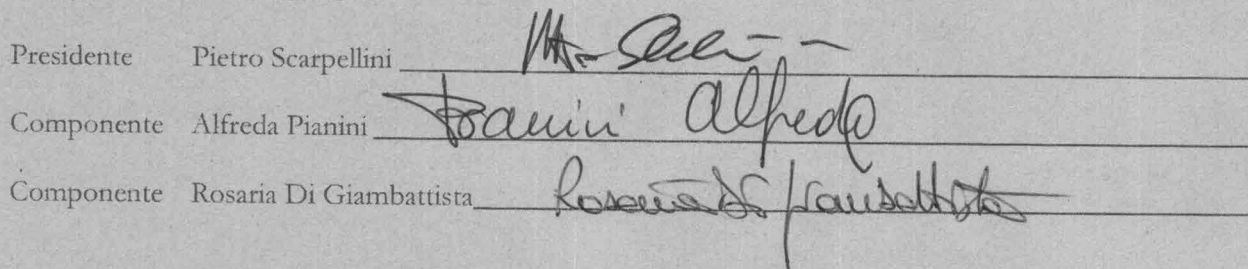 Presidente Pietro Scarpellini
Componente Alfreda Pianini Pianini Alfreda
Componente Rosaria Di Giambattista Rosaria Di Giambattista